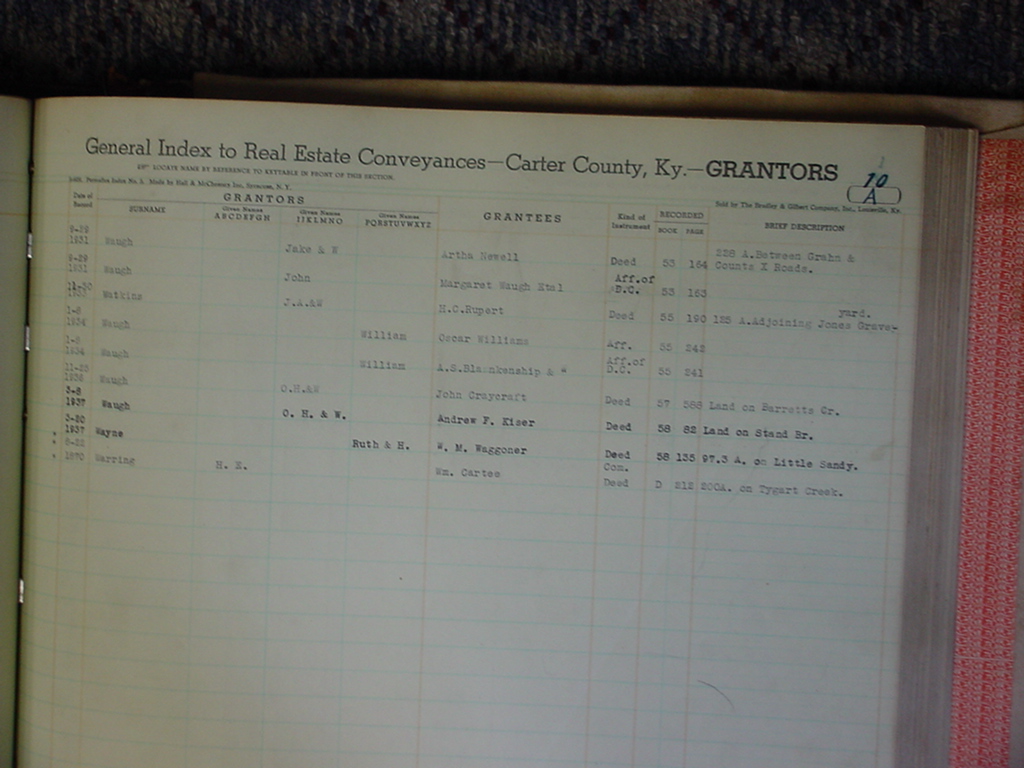 General Index to Real Estate Conveyances—Carter County, Ky.—GRANTORS
LOCATE NAME BY REFERENCE TO KEYTABLE IN FRONT OF THIS SECTION
10
A
Made by Hall & McChesney Inc., Syracuse, N. Y.
Sold by The Bradley & Gilbert Company, Inc., Louisville, Ky.
Date of Record SURNAME GRANTORS Given Names ABCDEFGH Given Names IJKLMNO Given Names PQRSTUVWXYZ GRANTEES Kind of Instrument RECORDED BOOK PAGE BRIEF DESCRIPTION
1931 Waugh Jake & W Artha Newell Deed 53 164 228 A.Between Grahn & Counts X Roads.
9-29 1931 Waugh John Margaret Waugh Etal Aff.of D.C. 53 163
11-30 Watkins J.A.&W H.C.Rupert Deed 55 190 125 A.Adjoining Jones Grave-yard.
1934 Waugh William Oscar Williams Aff. 55 242
1934 Waugh William A.S.Blankenship & W Aff.of D.C. 55 241
11-25 1936 Waugh O.H.&W John Craycraft Deed 57 588 Land on Barretts Cr.
3-8 1937 Waugh O. H. & W. Andrew F. Kiser Deed 58 82 Land on Stand Br.
3-20 1937 Wayne Ruth & H. W. M. Waggoner Deed 58 135 97.3 A. on Little Sandy.
1870 Warring H. E. Wm. Cartee Com. Deed D 212 200A. on Tygart Creek.